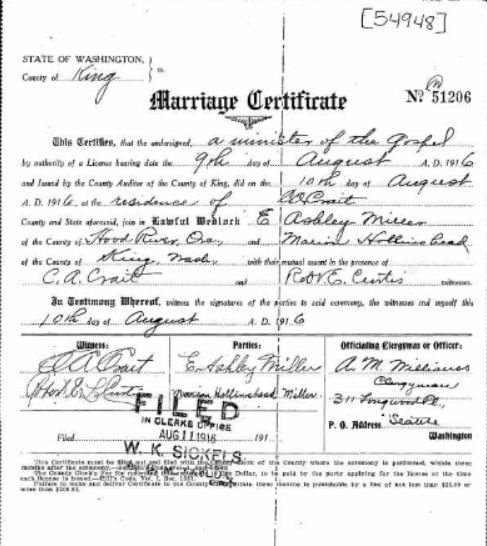 [54948]
STATE OF WASHINGTON,
County of King } ss.
Marriage Certificate
No. 51206
This Certifies, that the undersigned, a minister of the Gospel
by authority of a License bearing date the 9th day of August A. D. 1916
and issued by the County Auditor of the County of King, did on the 10th day of August
A. D. 1916, at the residence of
County and State aforesaid, join in Lawful Wedlock E Ashley Miller
of the County of Hood River, Ore, and Marion Hollinshead
of the County of King, Wash, with their mutual assent in the presence of
C. A. and Robt E. Curtis witnesses.
In Testimony Whereof, witness the signatures of the parties to said ceremony, the witnesses and myself this
10th day of August A. D. 1916
Witness: Parties: Officiating Clergyman or Officer:
E. Ashley Miller A. M. Williams
Robt E Curtis Marion Hollinshead Miller Clergyman
311
P. O. Address Seattle
Washington
FILED
IN CLERKS OFFICE
Filed AUG 11 1916 191
W. K. SICKELS
This Certificate must be filled out and filed with the County Clerk of the County where the ceremony is performed, within three
months after the ceremony.
The County Clerk's Fee for recording this is Dollar, to be paid by the party applying for the license at the time
each license is issued.
Failure to make and deliver Certificate to the County within three months is punishable by a fine of not less than $25.00 or
more than $300.00.